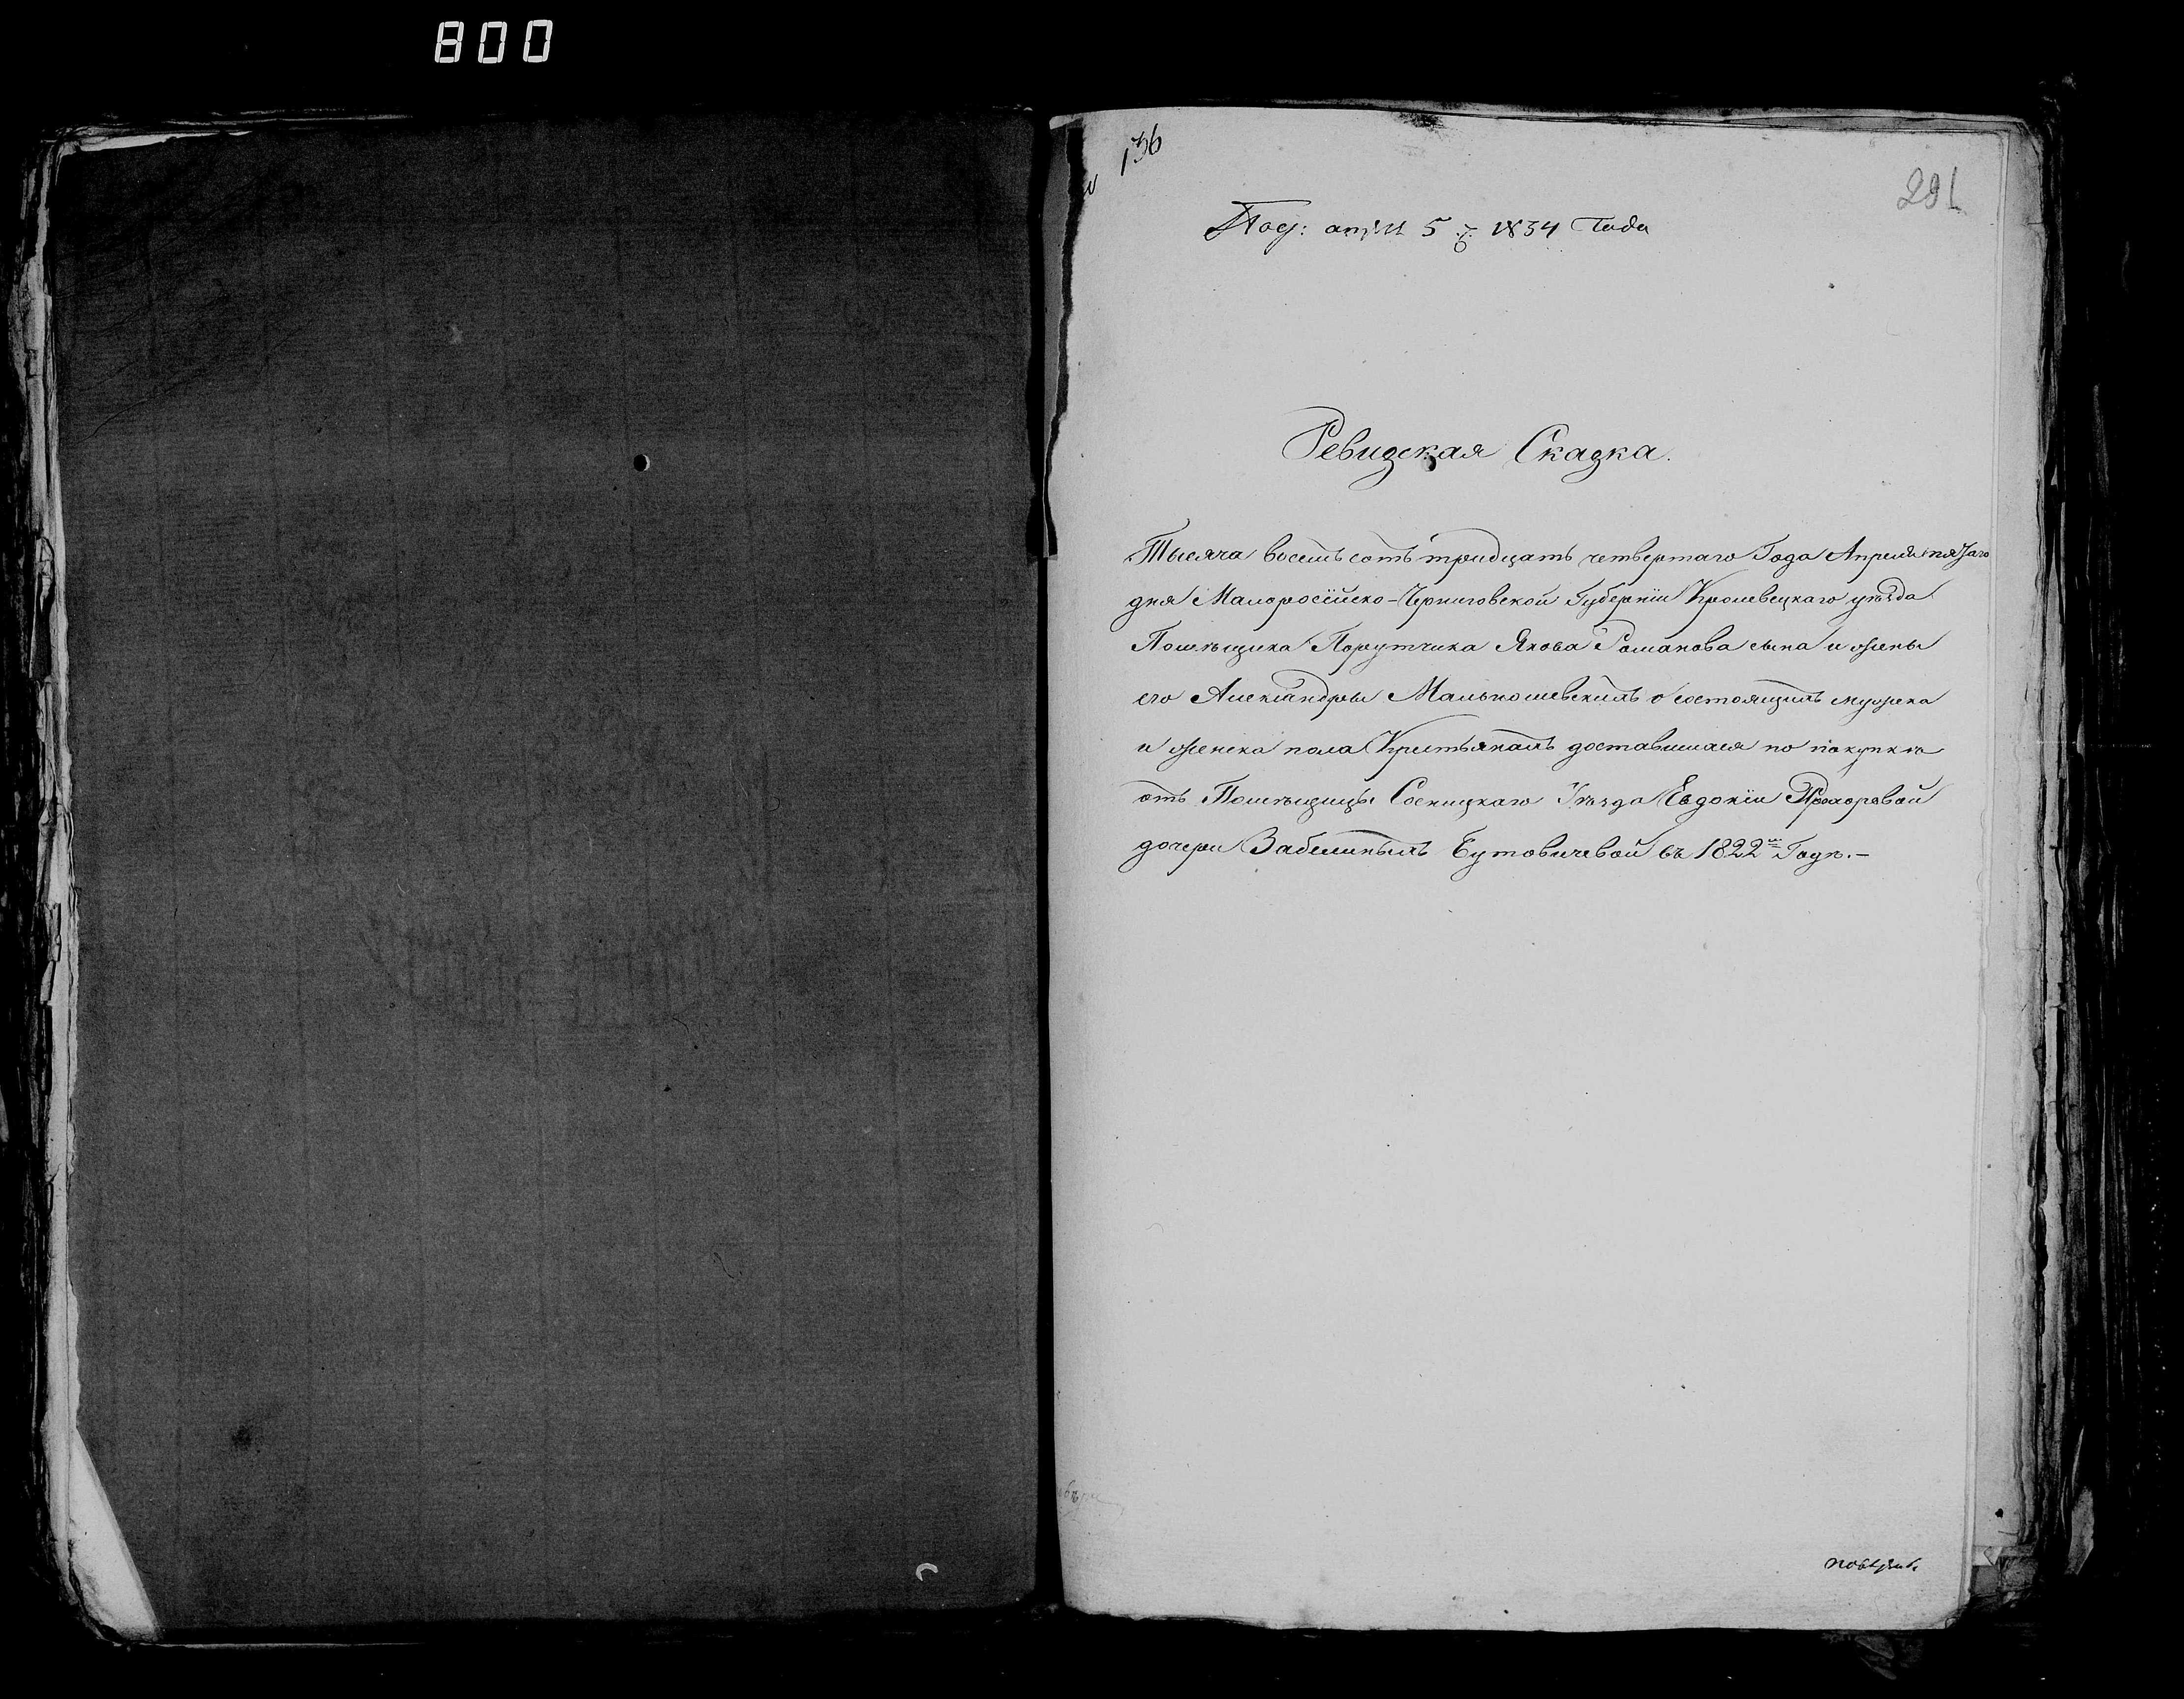 800
136
291
Под: апрѣля 5 д. 1834 Года
Ревизская Сказка.
Тысяча восемь сотъ тридцать четвертаго Года Апреля пятаго
дня Малоросійско-Черниговской Губерніи Кролевецкаго уѣзда
Помѣщика Порутчика Якова Романова сына и жены
его Александры Мальчошевскихъ о состоящихъ мужеска
и женска пола Крестьянахъ доставшихся по покупкѣ
отъ Помѣщицы Сосницкаго Уѣзда Евдокіи Прохоровой
дочери Забелиныхъ Бутовичевой въ 1822мъ Годѣ.-